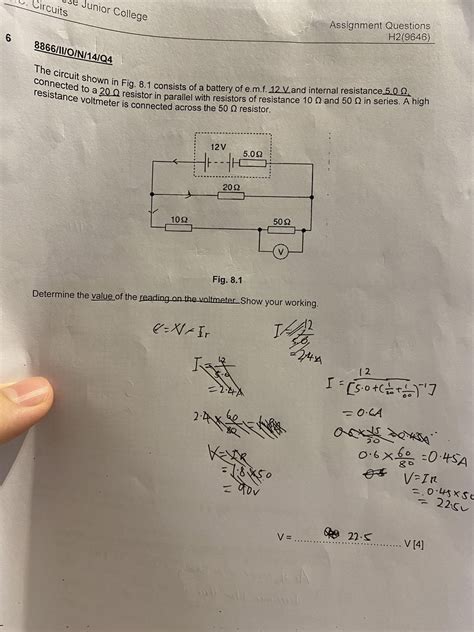 C. Circuits
Junior College
Assignment Questions
H2(9646)
6
8866/II/O/N/14/Q4
The circuit shown in Fig. 8.1 consists of a battery of e.m.f. 12 V and internal resistance 5.0 Ω,
connected to a 20 Ω resistor in parallel with resistors of resistance 10 Ω and 50 Ω in series. A high
resistance voltmeter is connected across the 50 Ω resistor.
12 V
5.0 Ω
20 Ω
10 Ω
50 Ω
V
Fig. 8.1
Determine the value of the reading on the voltmeter. Show your working.
I = 12/5.0
= 2.4A
I = 12/[5.0+(1/20+1/60)^-1]
= 0.6A
0.6 × 60/80 = 0.45A
V=IR
= 0.45×50
= 22.5V
I = 12/5.0
= 2.4A
V=IR
= 1.8×50
= 90V
V = 22.5 V [4]